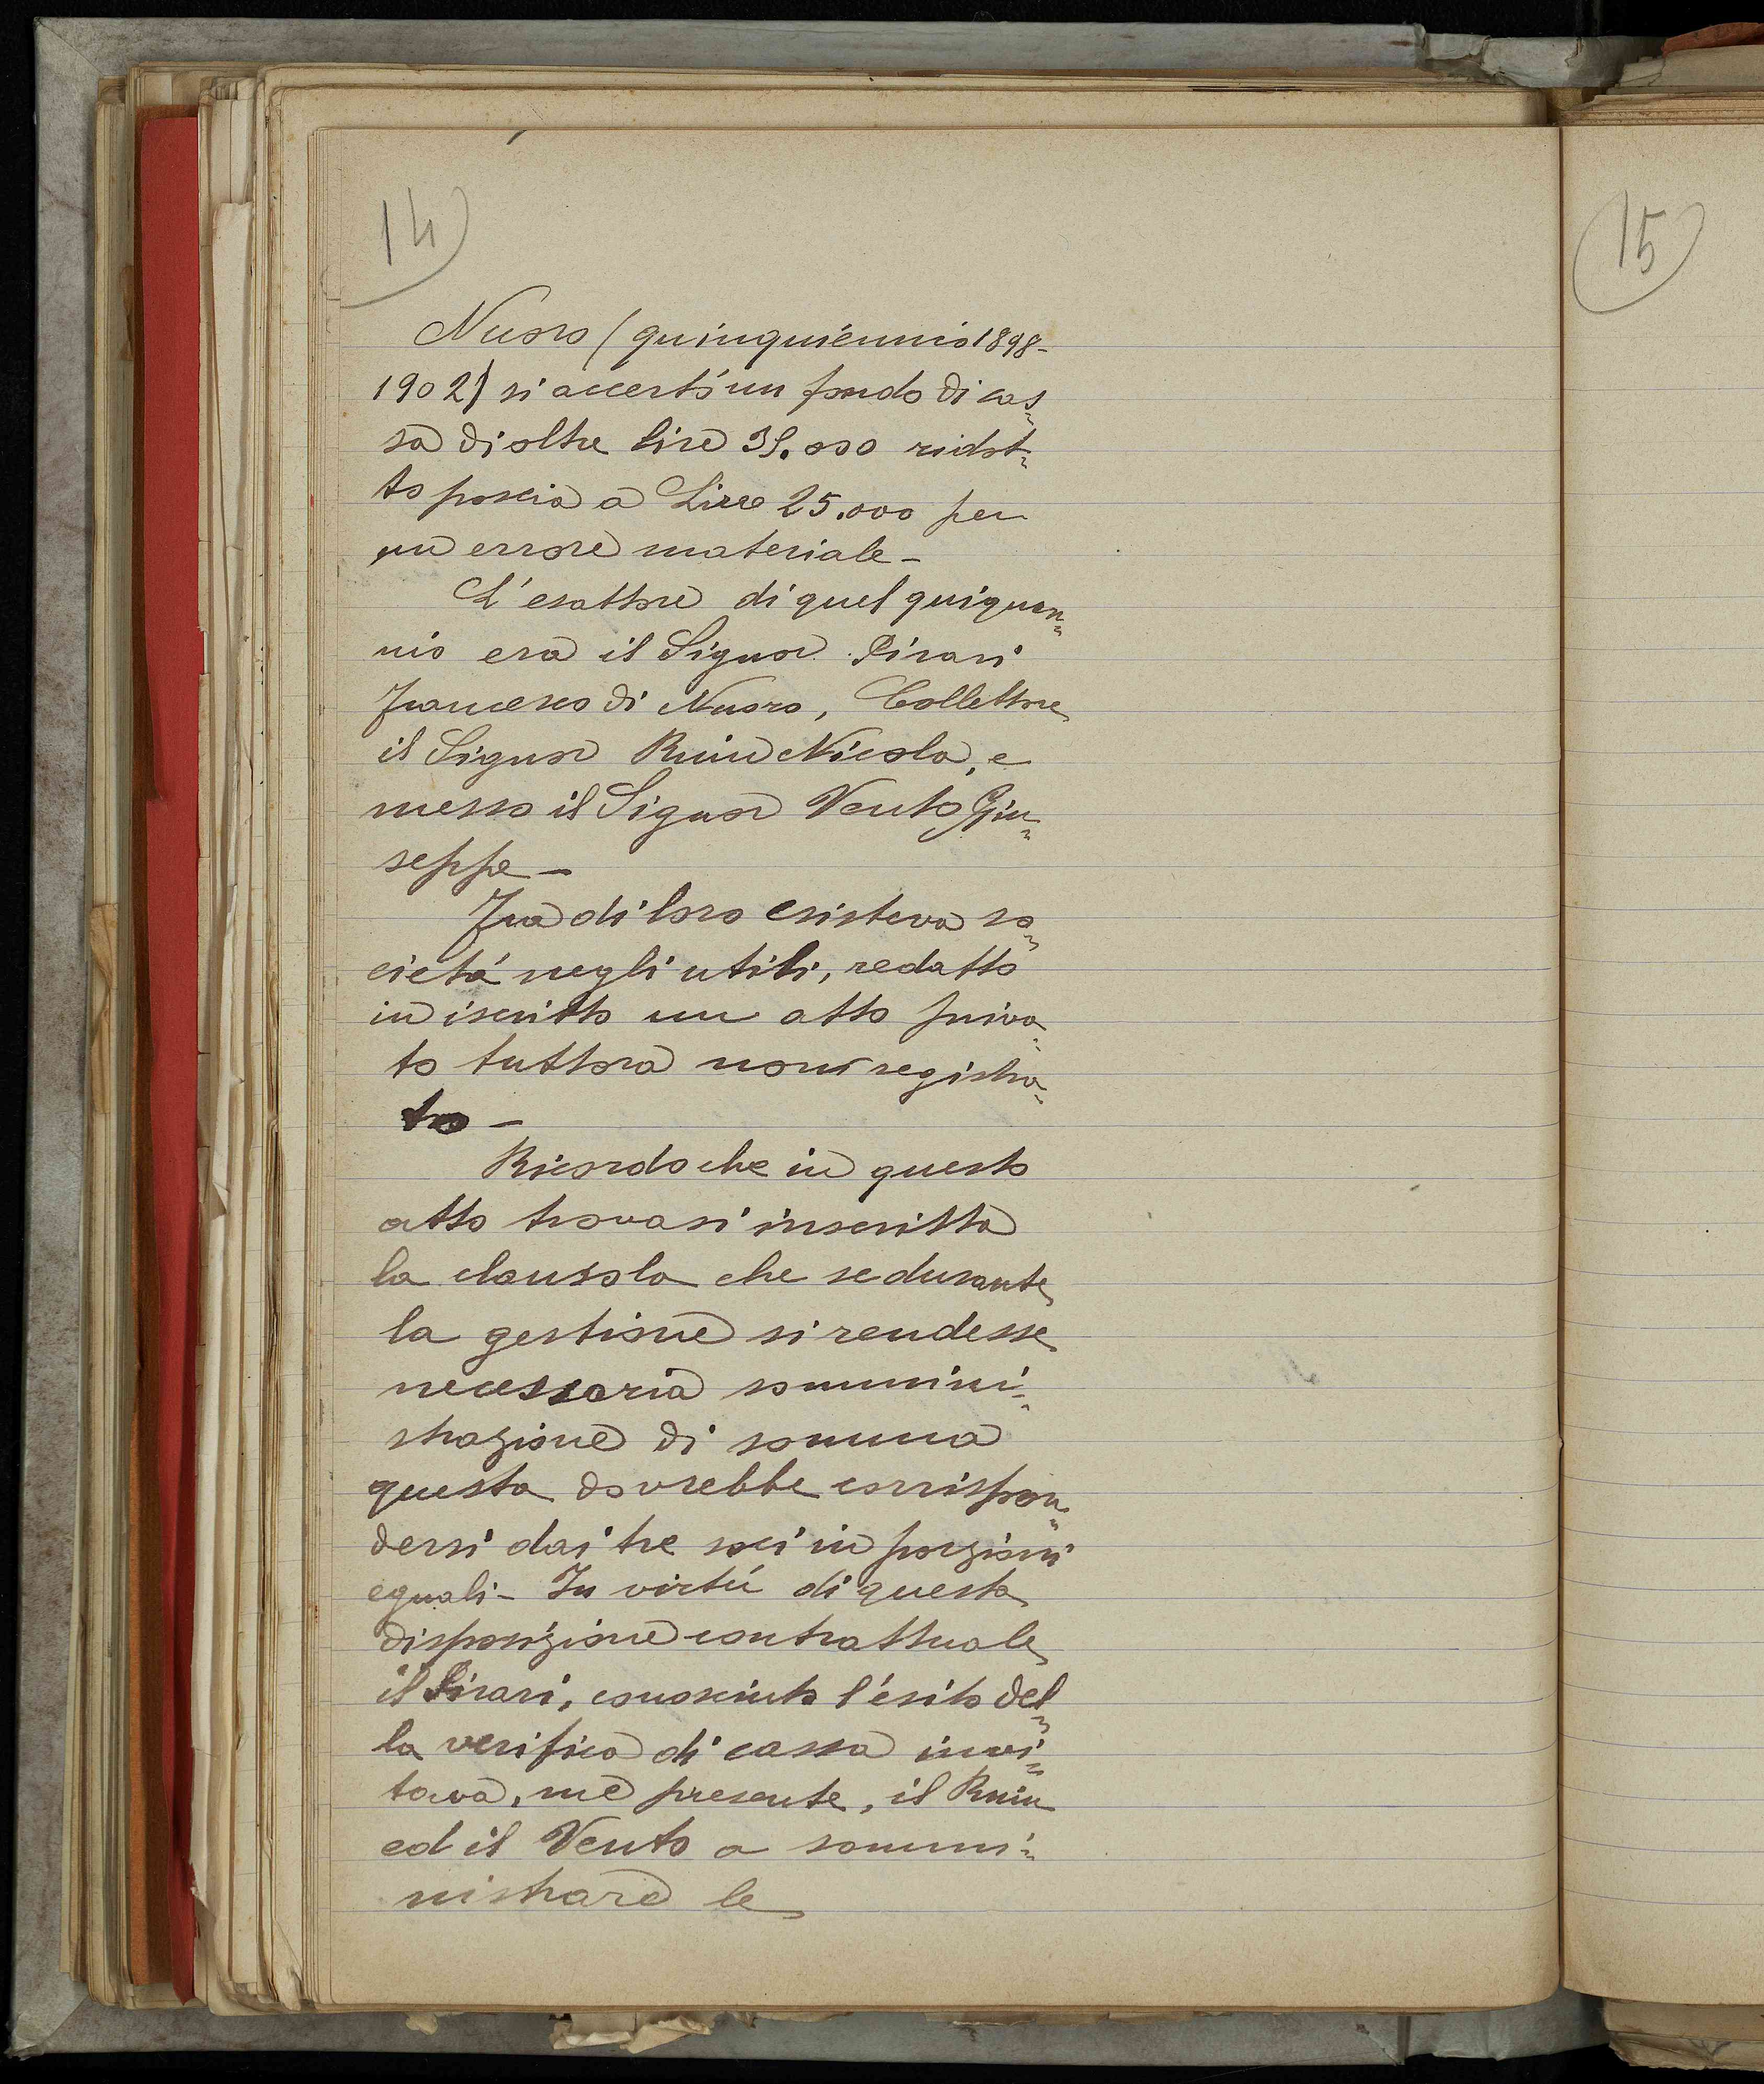 14
Nuoro (quinquiennio 1898-
1902) si accertó un fondo di cas=
sa di oltre lire 39.000 ridot=
to poscia a Lire 25.000 per
un errore materiale-
L'esattore di quel quiquen=
nio era il Signor Pirari
Francesco di Nuoro, Collettore
il Signor Ruiu Nicola, e
messo il Signor Vento Giu=
seppe-
Fra di loro esisteva so=
cietá negli utili, redatto
in iscritto un atto priva=
to tuttora non registra=
to-
Ricordo che in questo
atto trovasi inscritta
la clausola che se durante
la gestione si rendesse
necessaria sommini=
strazione di somma
questa dovrebbe corrispon=
dersi dai tre soci in porzioni
eguali- In virtú di questa
disposizione contrattuale
il Pirari, conosciuto l'ésito del=
la verifica di cassa invi=
tava, me presente, il Ruiu
ed il Vento a sommi=
nistrare le
15